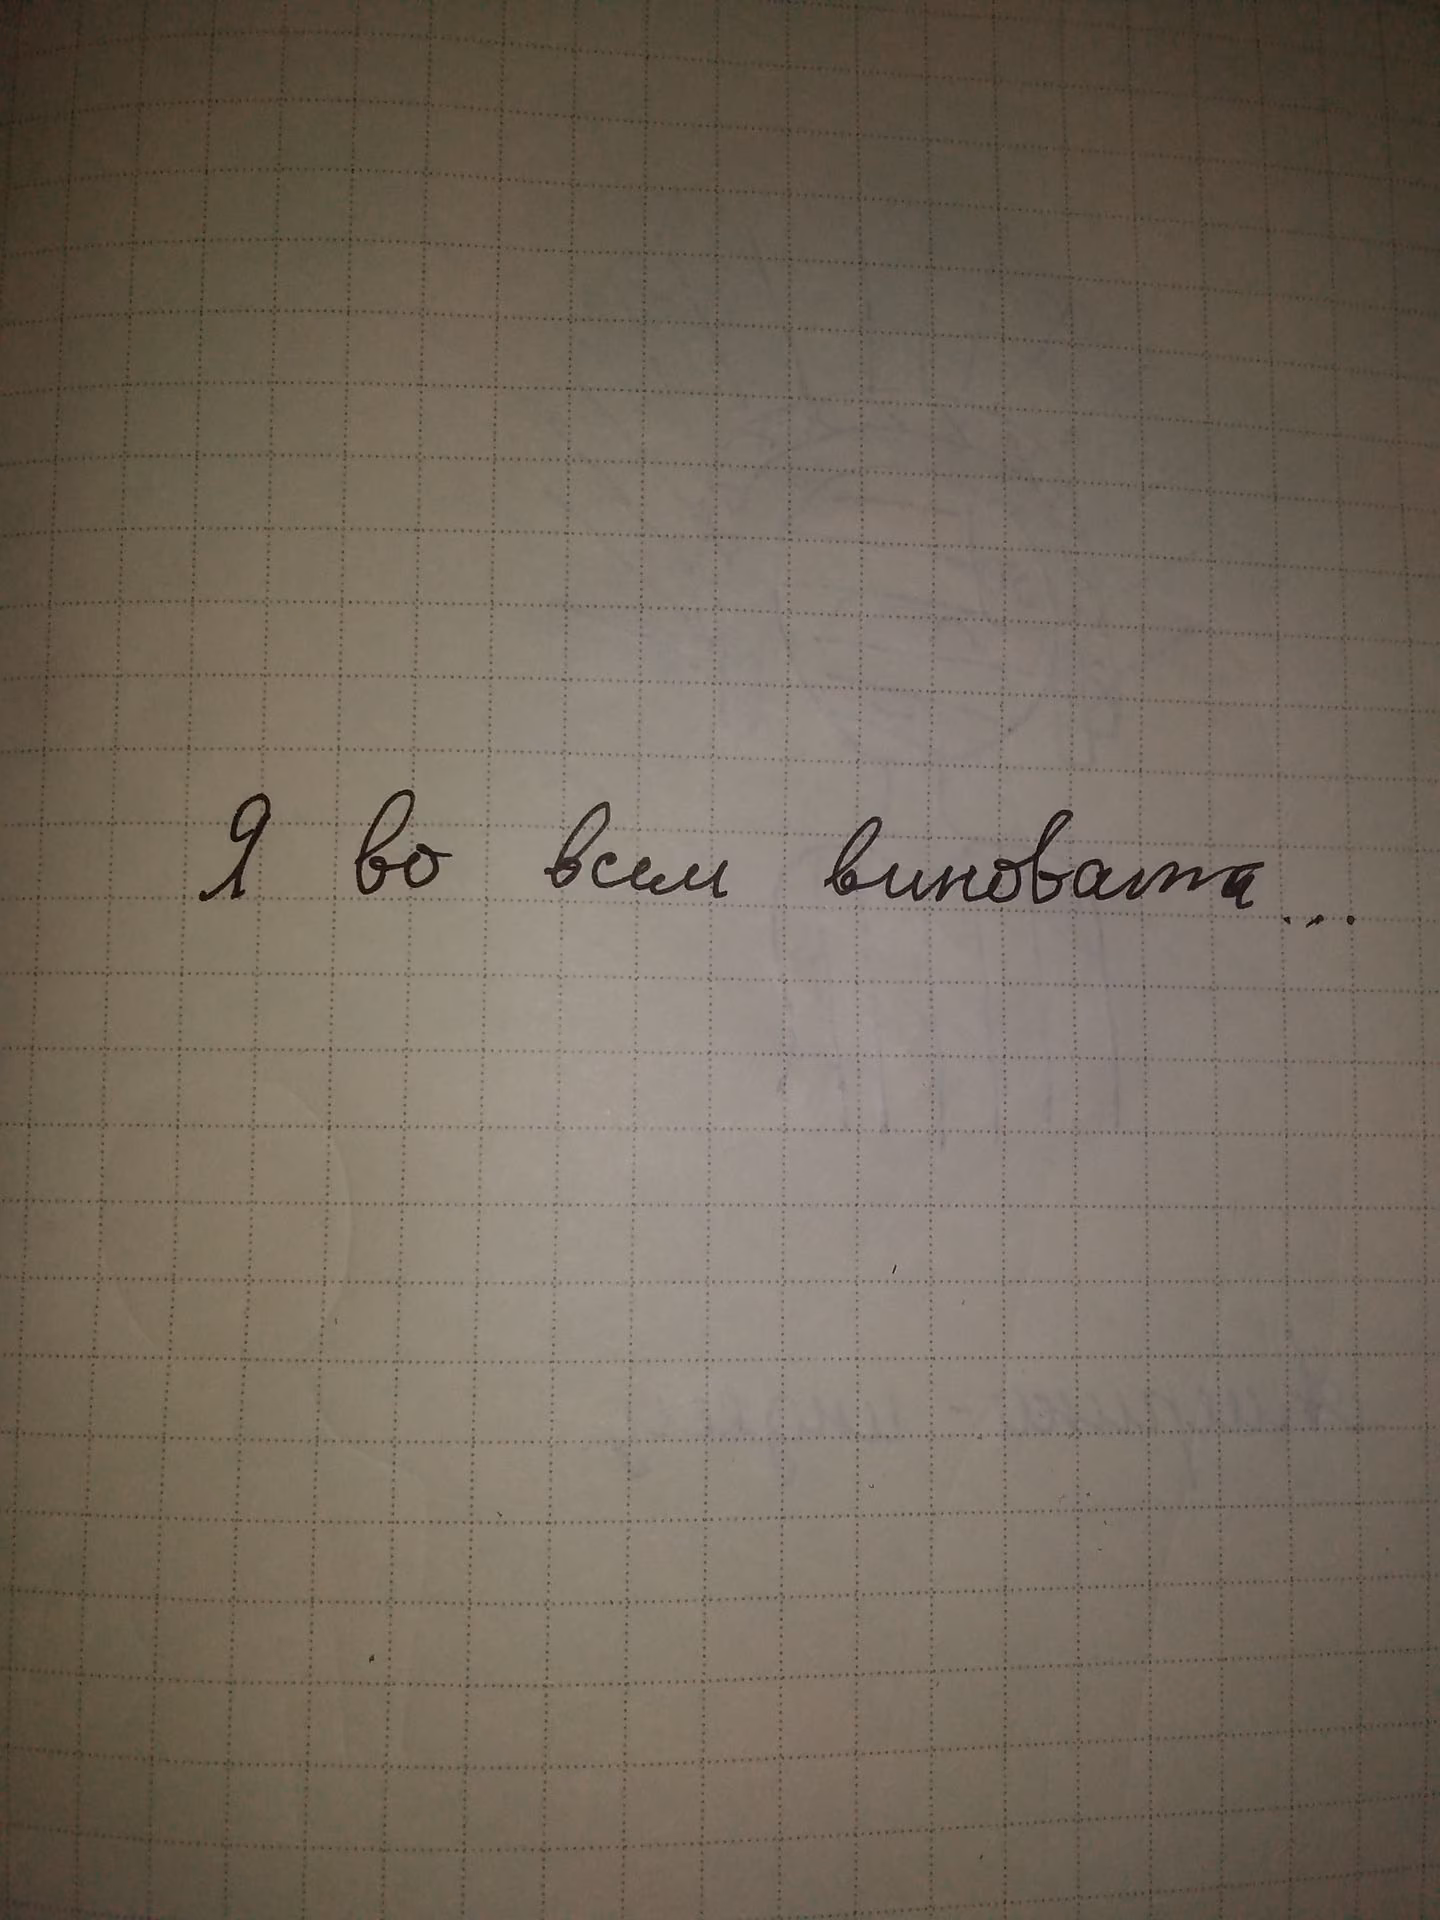 Я во всем виновата...